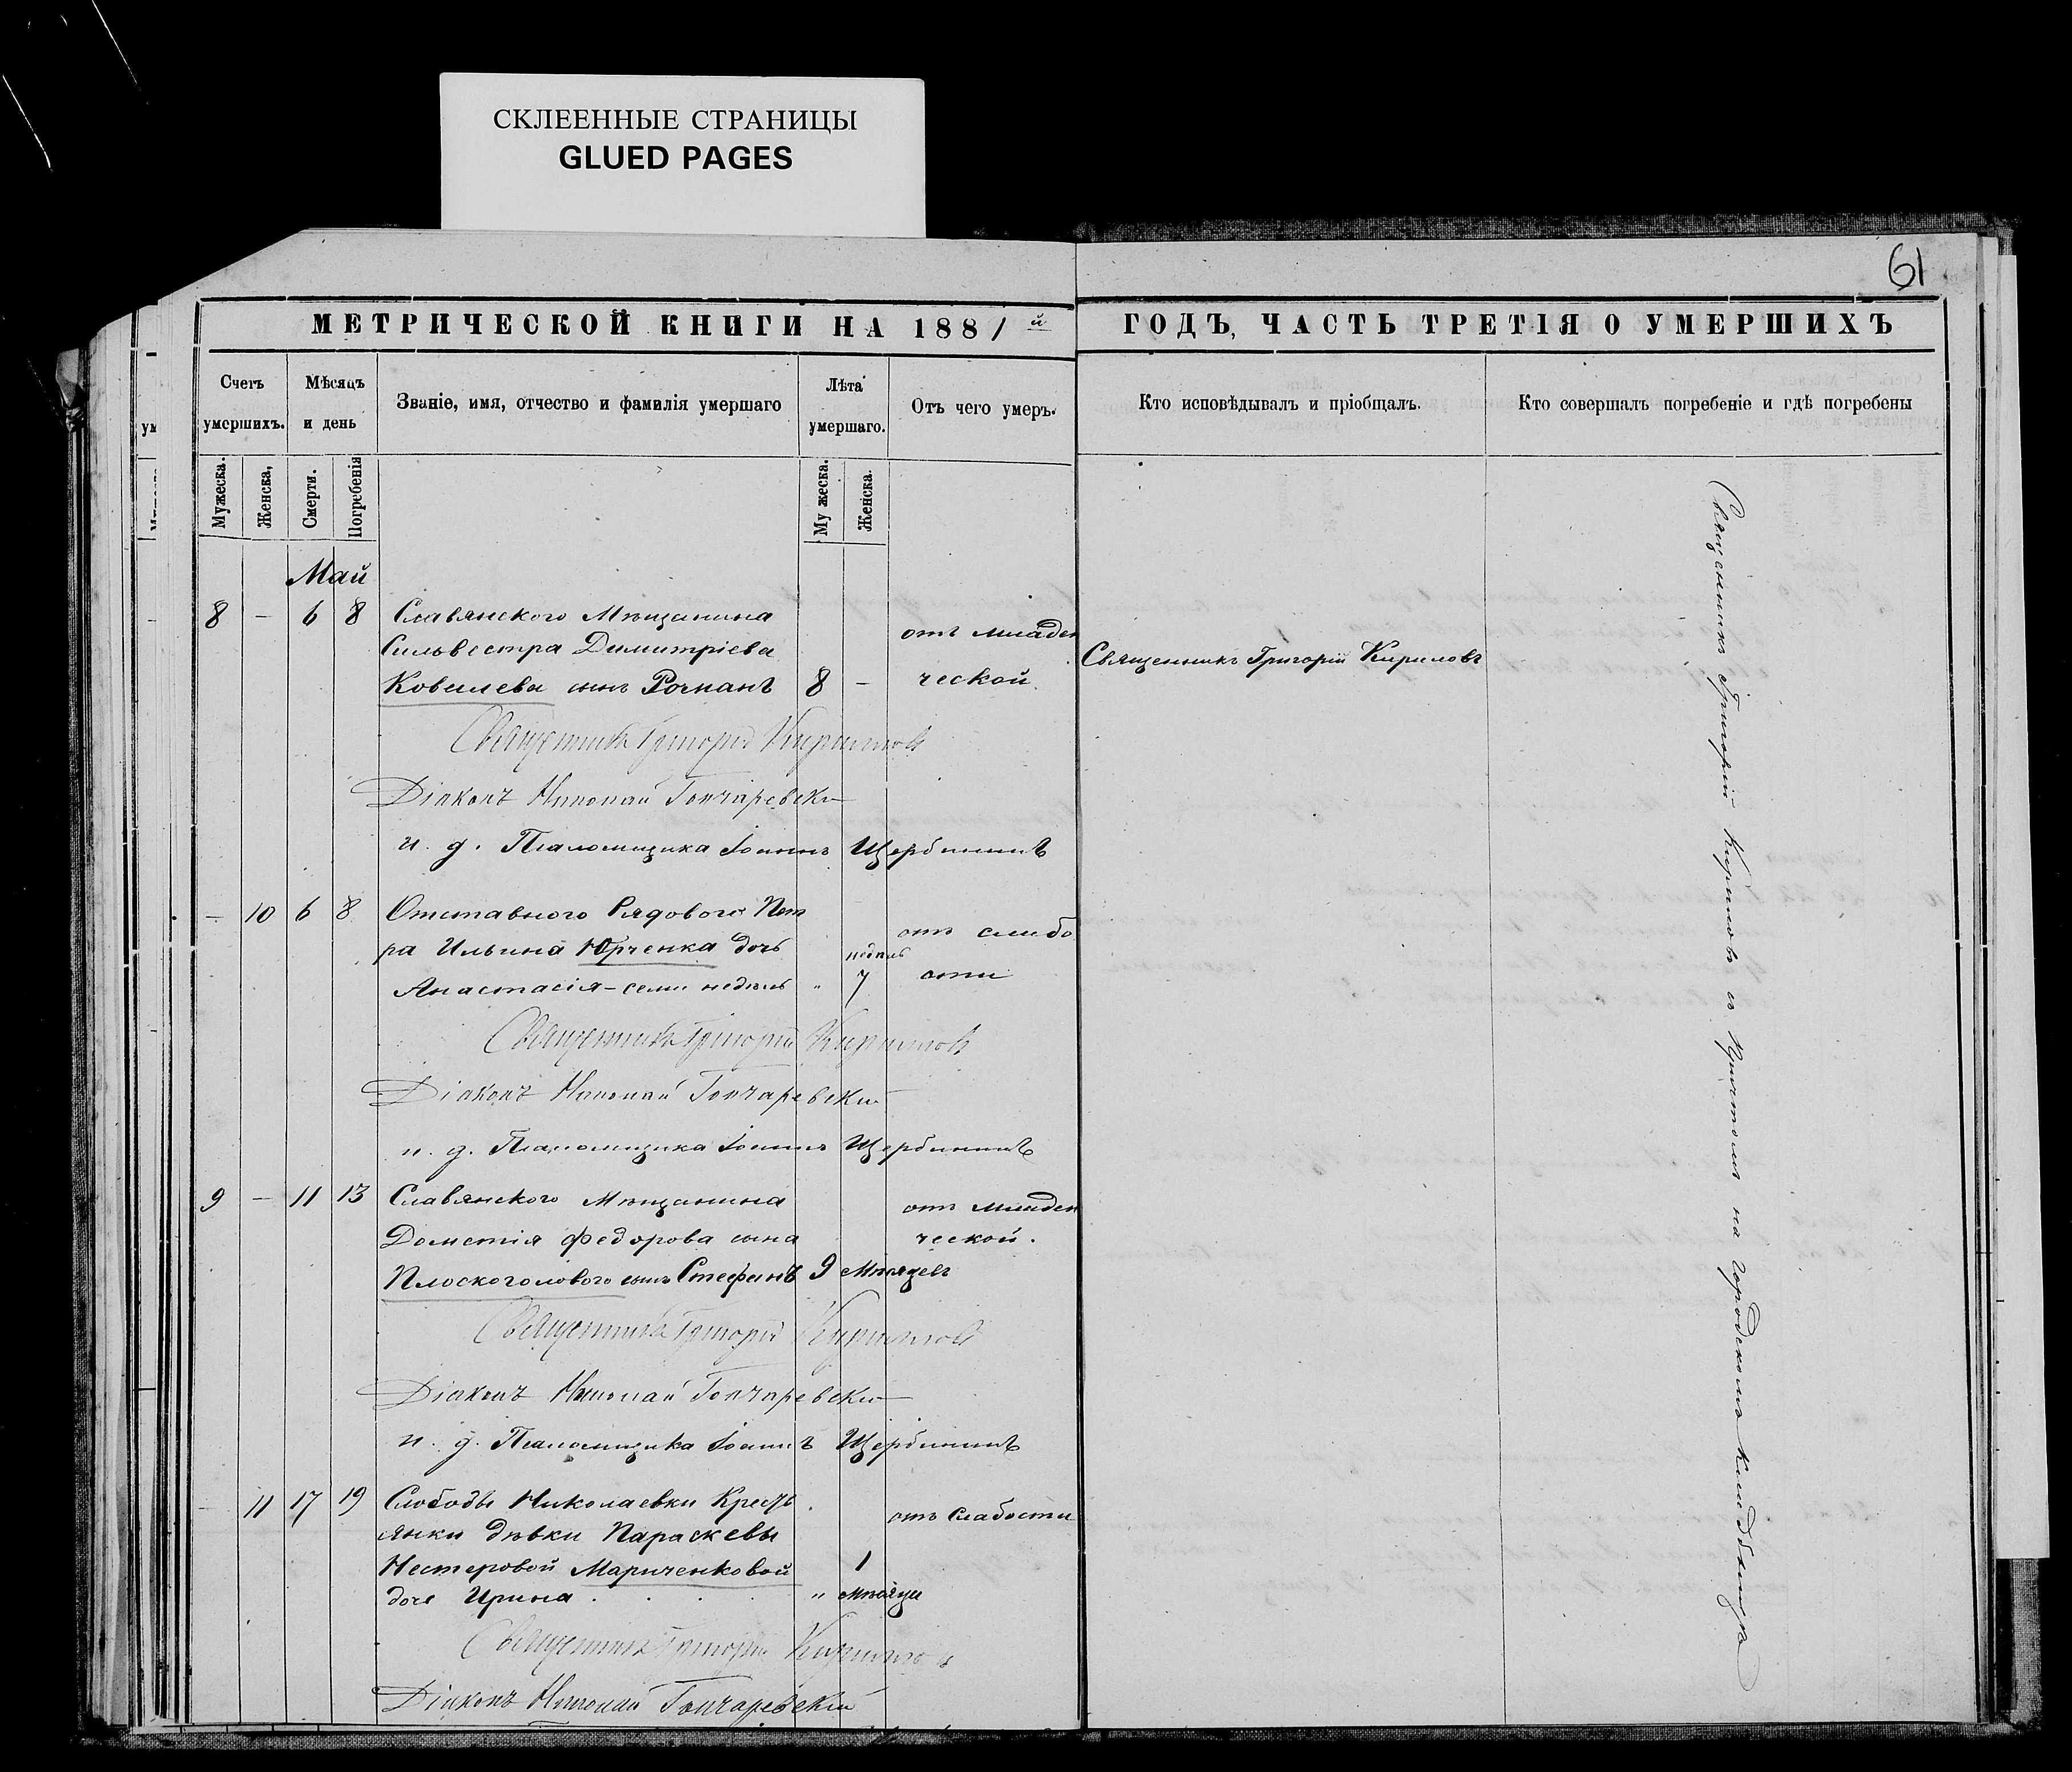 СКЛЕЕННЫЕ СТРАНИЦЫ
GLUED PAGES
61
МЕТРИЧЕСКОЙ КНИГИ НА 1881й ГОДЪ, ЧАСТЬ ТРЕТІЯ О УМЕРШИХЪ
Счетъ умершихъ.
Мѣсяцъ и день
Званіе, имя, отчество и фамилія умершаго
Лѣта умершаго.
Отъ чего умеръ.
Кто исповѣдывалъ и пріобщалъ.
Кто совершалъ погребеніе и гдѣ погребены
Мужеска.
Женска,
Смерти.
Погребенія
Му жеска.
Женска.
Май
8 — 6 8 Славянского Мѣщанина
Сильвестра Димитріева
Ковалева сынъ Романъ 8 —
отъ младен
ческой.
Священникъ Григорій Кириловъ
Священникъ Григорій Кириловъ
Діаконъ Николай Гончаревскій
и. д. Псаломщика Іоаннъ Щербининъ
— 10 6 8 Отставного Рядового Пет
ра Ильина Юрченка дочь
Анастасія – семи недѣль " 7
недѣль
отъ слабо
сти
Священникъ Григорій Кириловъ
Діаконъ Николай Гончаревскій
и. д. Псаломщика Іоаннъ Щербининъ
9 — 11 13 Славянского Мѣщанина
Дометія Федорова сына
Плоскоголового сынъ Стефанъ 9 Мѣсяцевъ
отъ младен
ческой.
Священникъ Григорій Кириловъ
Діаконъ Николай Гончаревскій
и. д. Псаломщика Іоаннъ Щербининъ
— 11 17 19 Слободы Николаевки Кресть
янки дѣвки Параскевы
Нестеровой Мариченковой 1
дочь Ирина . . . . " мѣсяца
отъ слабости
Священникъ Григорій Кириловъ
Діаконъ Николай Гончаревскій
Священникъ Григорій Кириловъ съ Причтомъ на городскомъ кладбищѣ